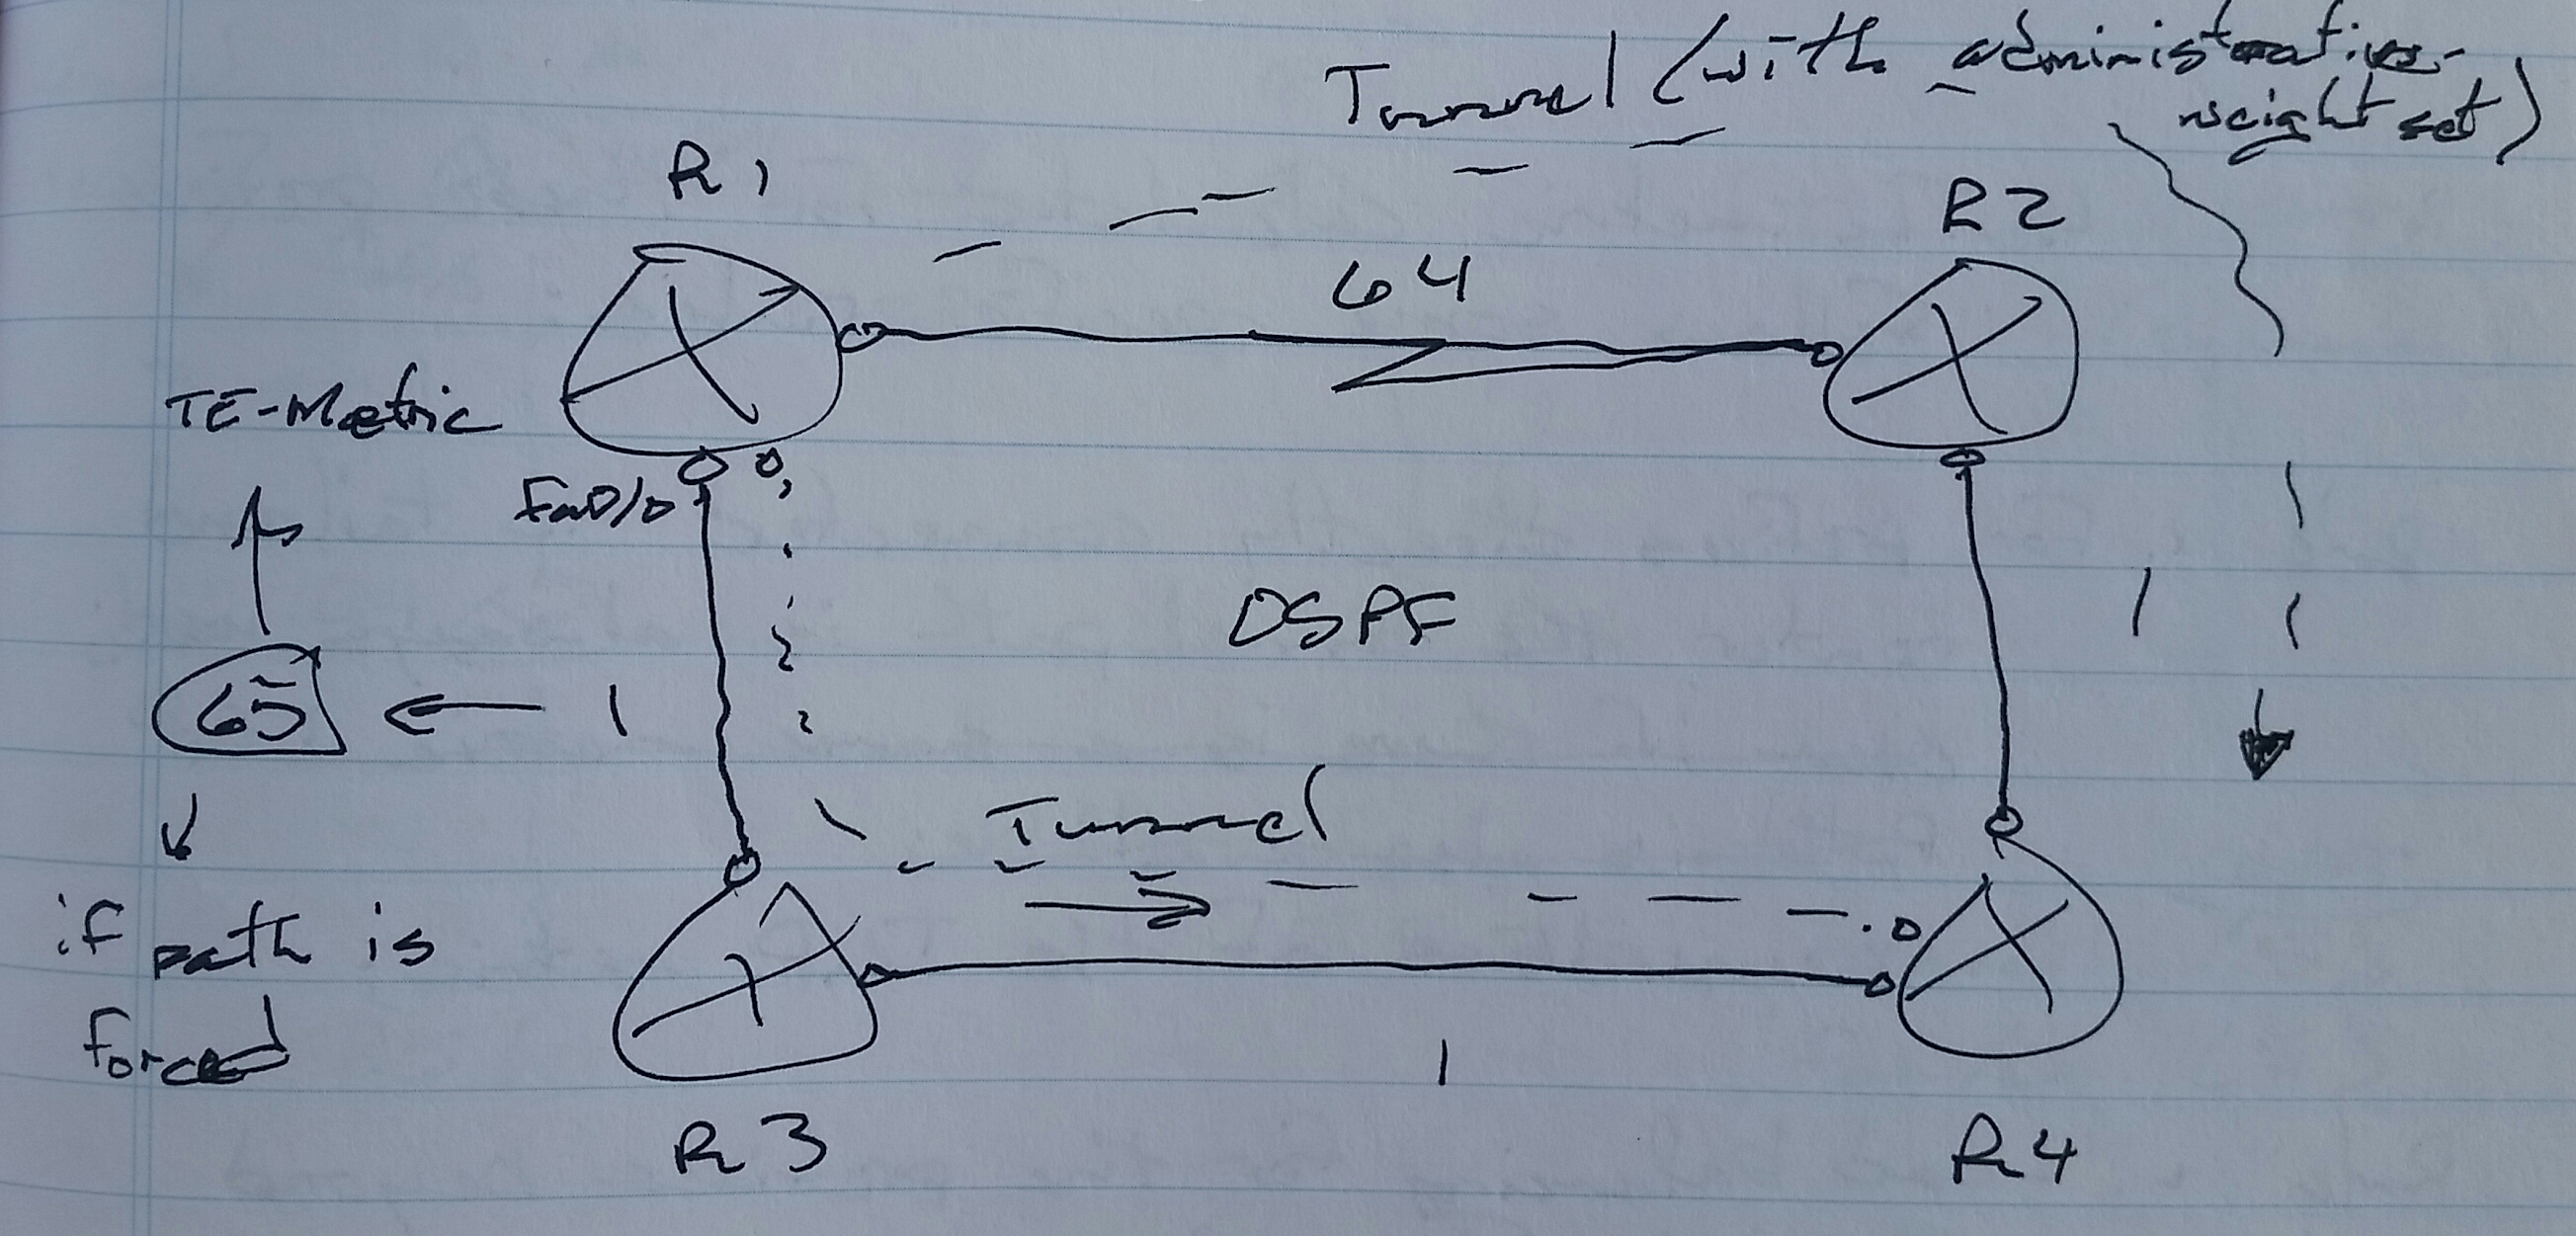 Tunnel (with administrative-
weight set)
R1
R2
64
TE-Metric
Fa0/0
OSPF
1
65
1
Tunnel
if path is
forced
1
R3
R4